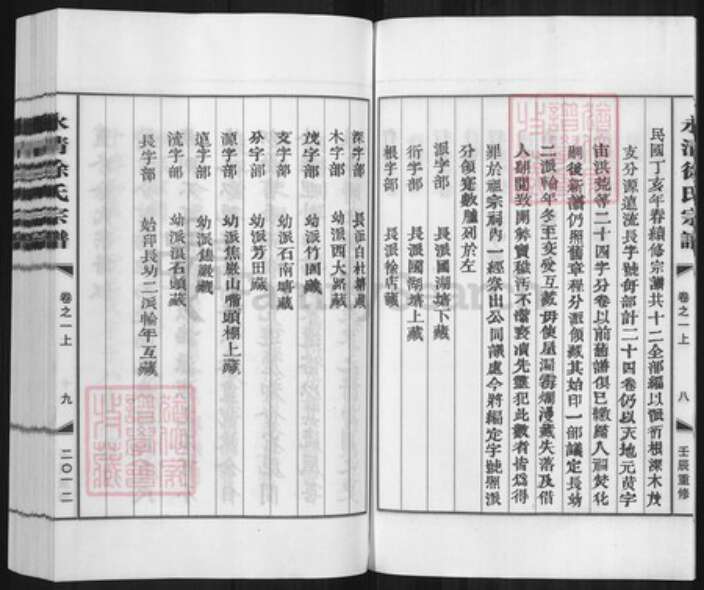 永清徐氏宗譜
卷之一上
八
壬辰重修
民國丁亥年春續修宗譜共十二全部編以派衍根深木茂
支分源遠流長字號每部計二十四卷仍以天地元黃宇
宙洪荒等二十四字分卷以前舊譜俱已繳繡入祠焚化
嗣後新譜仍照舊章程分派領藏其始印一部議定長幼
二派輪年冬至交受互藏毋使屋漏霉爛漫藏失落及借
人翻閱致開弊竇穢污不潔褻瀆先靈犯此數者皆為得
罪於祖宗祠內一經察出公同議處今將編定字號照派
分領定數臚列於左
派字部 長派國湖塘下藏
衍字部 長派國湖塘上藏
根字部 長派徐店藏
深字部 長派白杜塘藏
木字部 幼派西大路藏
茂字部 幼派竹園藏
支字部 幼派石南塘藏
分字部 幼派芳田藏
源字部 幼派焦巖山嘴頭樓上藏
遠字部 幼派焦巖藏
流字部 幼派浪石頭藏
長字部 始印長幼二派輪年互藏
永清徐氏宗譜
卷之一上
九
二〇一二